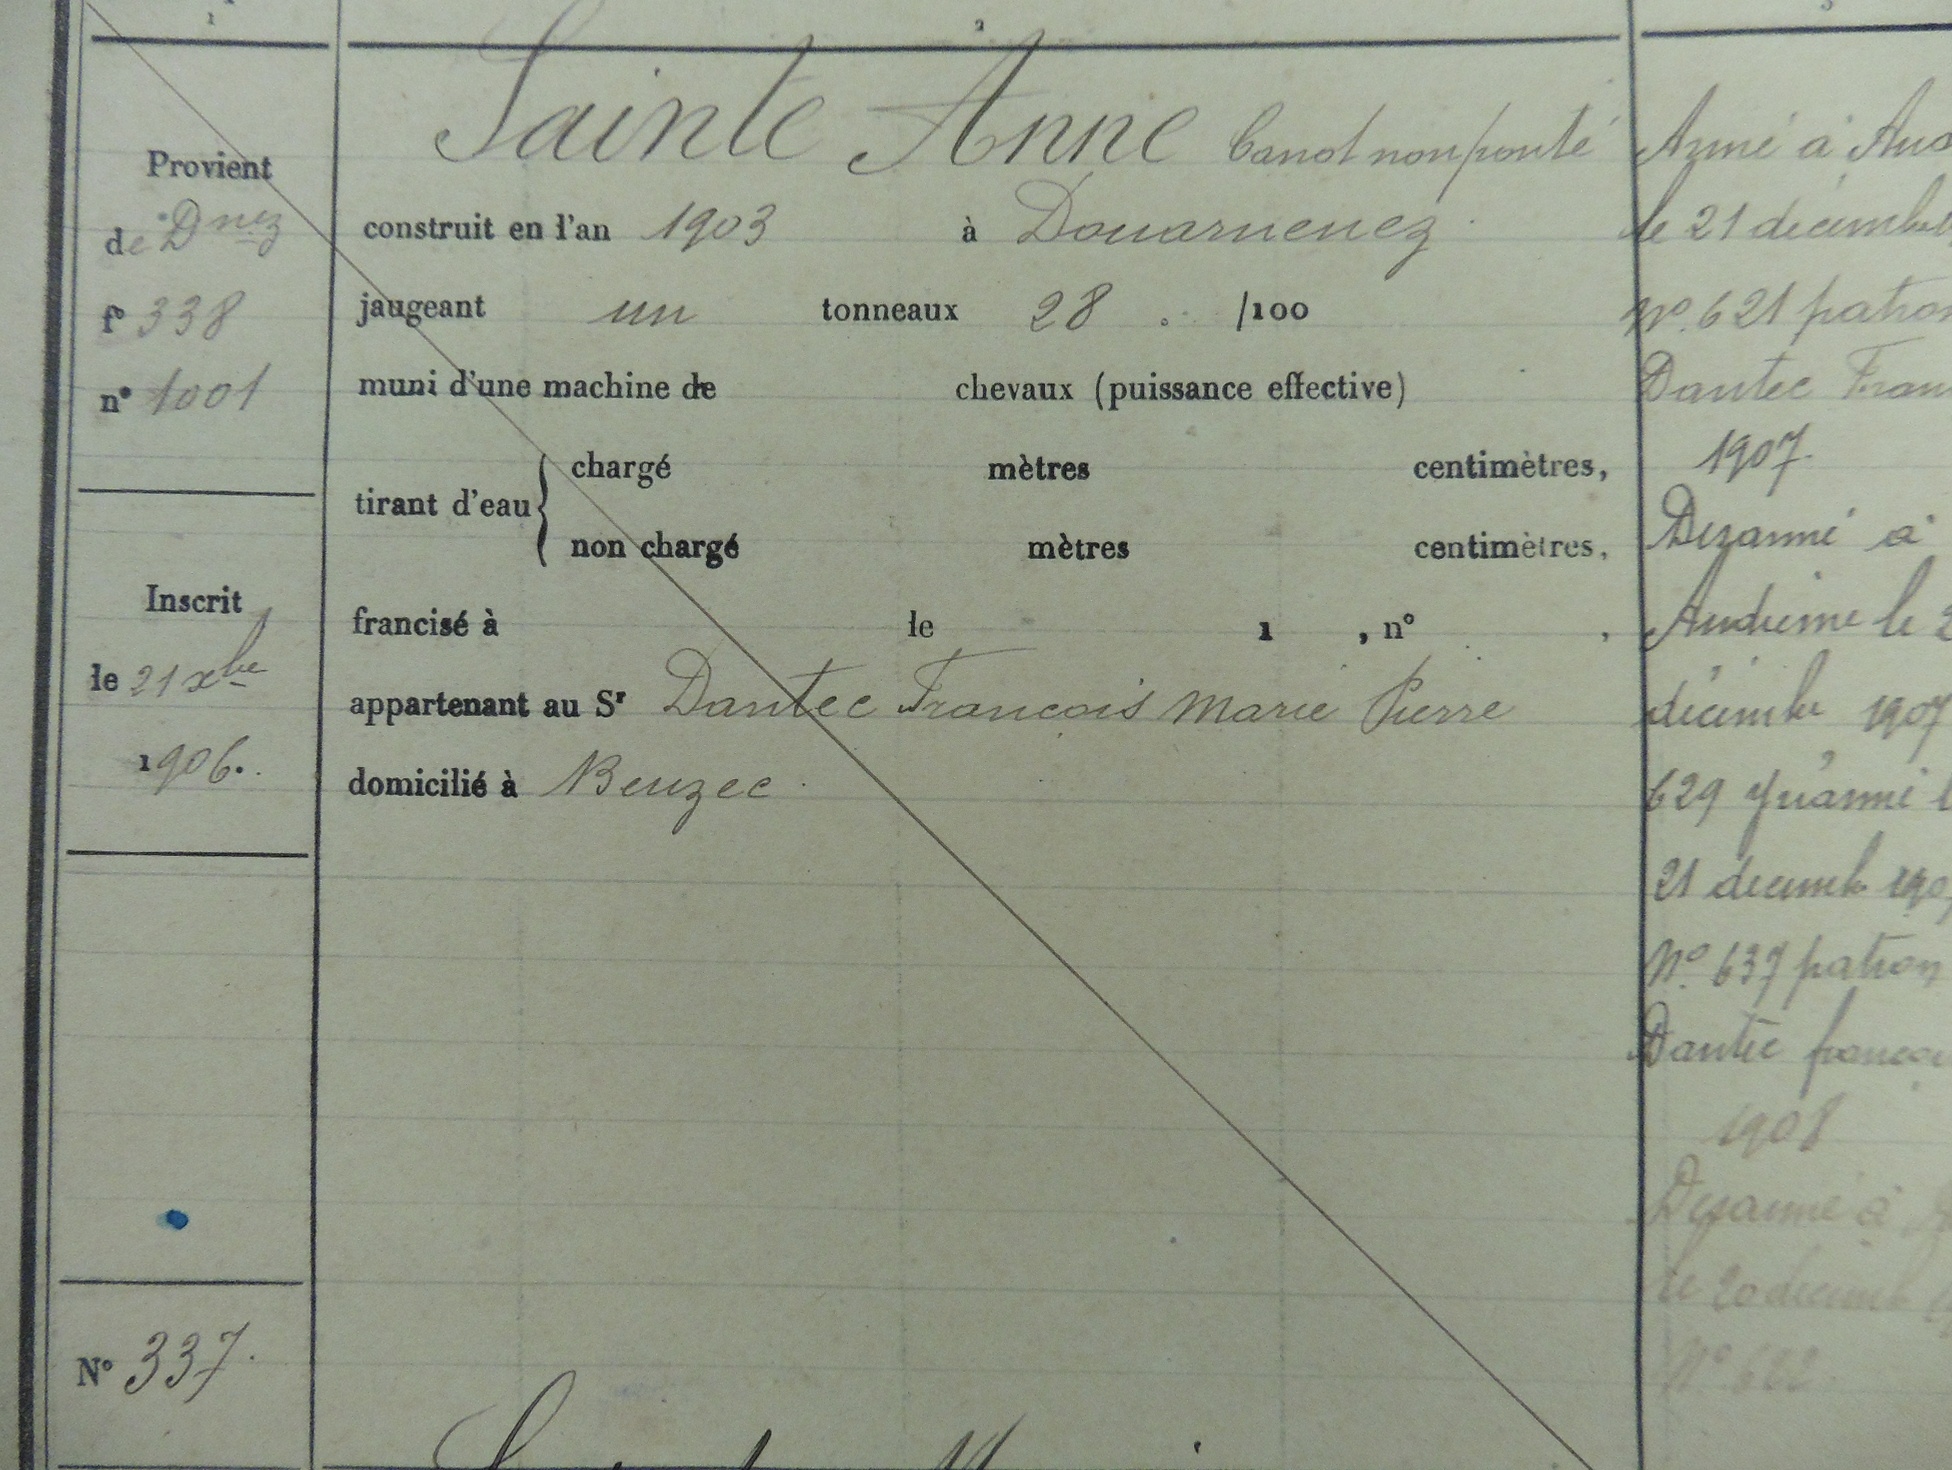 1
2
3
Provient
de Dnez
fº 338
nº 1001
Inscrit
le 21 xbre
1906.
Nº 337.
Sainte Anne Canot non ponté
construit en l'an 1903 à Douarnenez
jaugeant un tonneaux 28 /100
muni d'une machine de chevaux (puissance effective)
tirant d'eau { chargé mètres centimètres,
non chargé mètres centimètres,
francisé à le 1 , nº ,
appartenant au Sr Dantec François Marie Pierre
domicilié à Beuzec
Armé à Aud
le 21 décembre
Nº 621 patron
Dantec Fran
1907
Désarmé à
Audierne le 2
décembre 1907
629 Réarmé l
21 décemb 190
Nº 637 patron
Dantec françoi
1908
Désarmé à
le 20 décemb
Nº 622